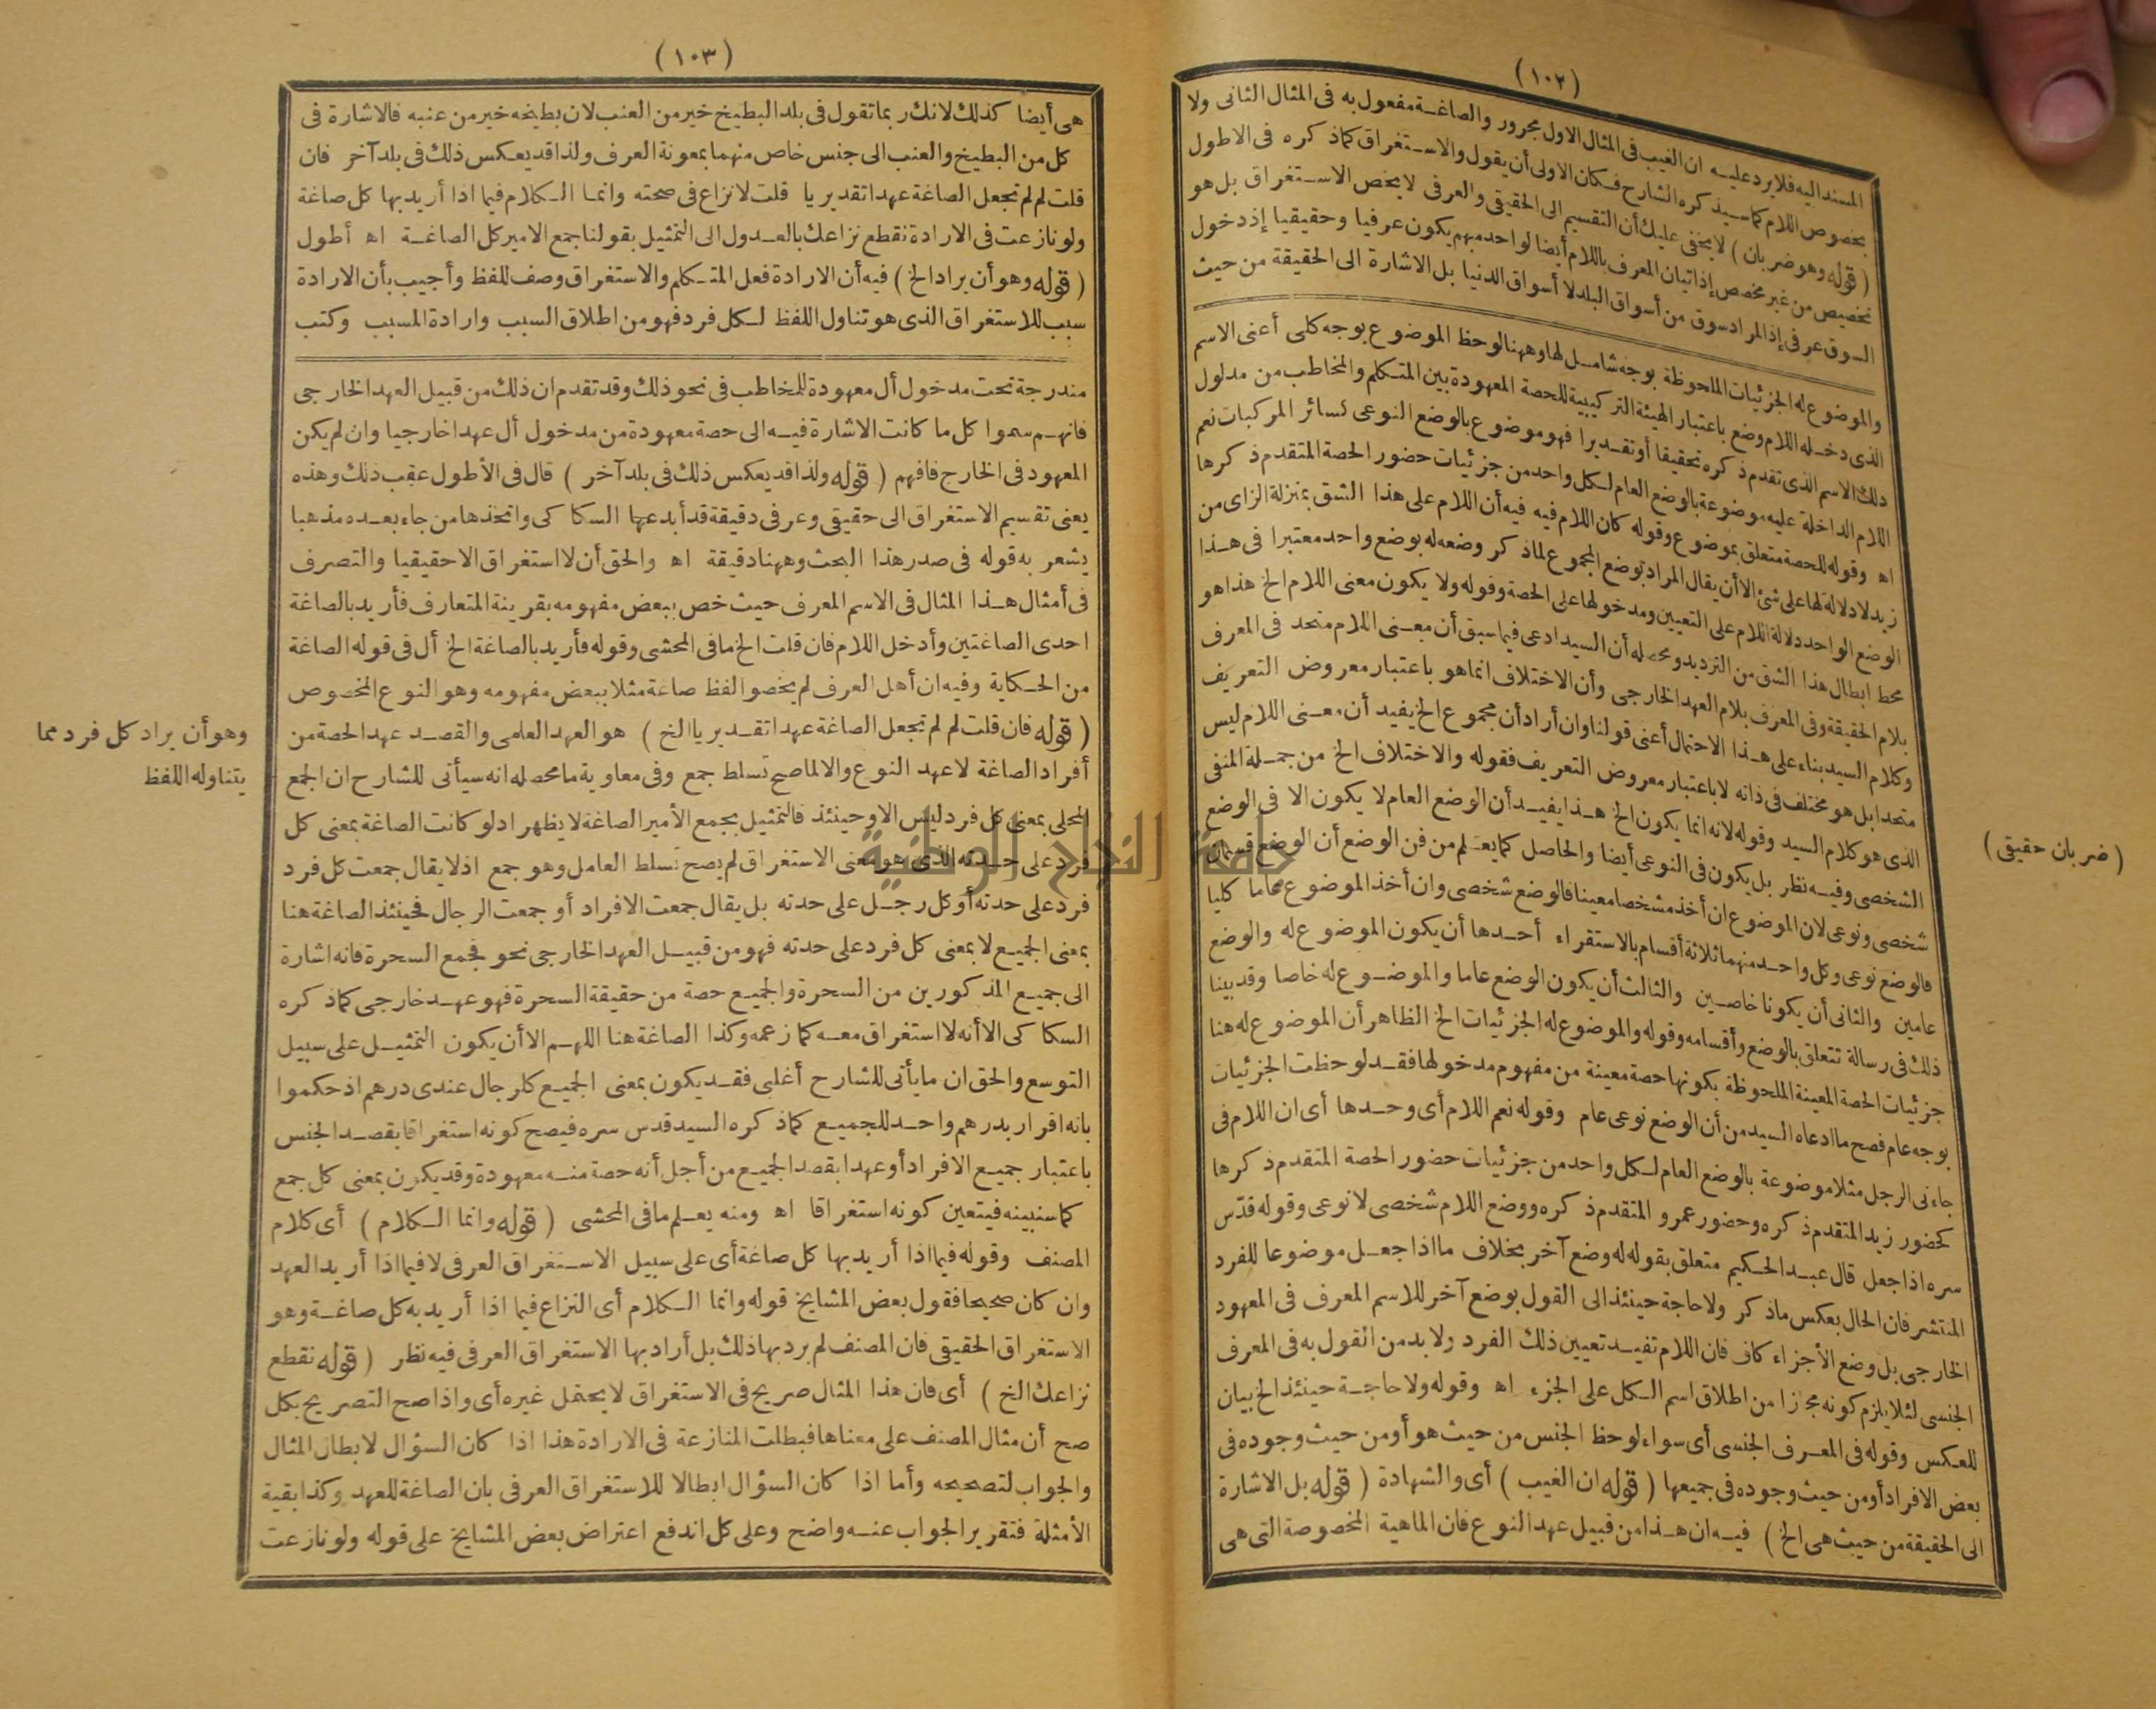 (١٠٢)
المسند اليه فلا يرد عليه ان الغيب فى المثال الاول مجرور والصاغة مفعول به فى المثال الثانى ولا
بخصوص اللام كما سيذكره الشارح فكان الاولى أن يقول والاستغراق كما ذكره فى الاطول
(قوله وهو ضربان) لا يخفى عليك أن التقسيم الى الحقيقى والعرفى لا يخص الاستغراق بل هو
تخصيص من غير مخصص إذ اتيان المعرف باللام أيضا لواحد مبهم يكون عرفيا وحقيقيا إذ دخول
السوق عرفى إذ المراد سوق من أسواق البلد لا أسواق الدنيا بل الاشارة الى الحقيقة من حيث
والموضوع له الجزئيات الملحوظة بوجه شامل لها وههنا لوحظ الموضوع بوجه كلى أعنى الاسم
الذى دخله اللام وضع باعتبار الهيئة التركيبية للحصة المعهودة بين المتكلم والمخاطب من مدلول
ذلك الاسم الذى تقدم ذكره تحقيقا أو تقديرا فهو موضوع بالوضع النوعى كسائر المركبات نعم
اللام الداخلة عليه موضوعة بالوضع العام لكل واحد من جزئيات حضور الحصة المتقدم ذكرها
اه وقوله للحصة متعلق بموضوع وقوله كان اللام فيه فيه أن اللام على هذا الشق بمنزلة الزاى من
زيد لا دلالة لها على شئ الا أن يقال المراد بوضع المجموع لما ذكر وضعه له بوضع واحد معتبرا فى هذا
الوضع الواحد دلالة اللام على التعيين ومدخولها على الحصة وقوله ولا يكون معنى اللام الخ هذا هو
محط ابطال هذا الشق من الترديد ومحصله أن السيد ادعى فيما سبق أن معنى اللام متحد فى المعرف
بلام الحقيقة وفى المعرف بلام العهد الخارجى وأن الاختلاف انما هو باعتبار معروض التعريف
وكلام السيد بناء على هذا الاحتمال أعنى قولنا وان أراد أن مجموع الخ يفيد أن معنى اللام ليس
متحدا بل هو مختلف فى ذاته لا باعتبار معروض التعريف فقوله والاختلاف الخ من جملة المنفى
الذى هو كلام السيد وقوله لانه انما يكون الخ هذا يفيد أن الوضع العام لا يكون الا فى الوضع
الشخصى وفيه نظر بل يكون فى النوعى أيضا والحاصل كما يعلم من فن الوضع أن الوضع قسمان
شخصى ونوعى لان الموضوع ان أخذ مشخصا معينا فالوضع شخصى وان أخذ الموضوع عاما كليا
فالوضع نوعى وكل واحد منهما ثلاثة أقسام بالاستقراء أحدها أن يكون الموضوع له والوضع
عامين والثانى أن يكونا خاصين والثالث أن يكون الوضع عاما والموضوع له خاصا وقد بينا
ذلك فى رسالة تتعلق بالوضع وأقسامه وقوله والموضوع له الجزئيات الخ الظاهر أن الموضوع له هنا
جزئيات الحصة المعينة الملحوظة بكونها حصة معينة من مفهوم مدخولها فقد لوحظت الجزئيات
بوجه عام فصح ما ادعاه السيد من أن الوضع نوعى عام وقوله نعم اللام أى وحدها أى ان اللام فى
جاءنى الرجل مثلا موضوعة بالوضع العام لكل واحد من جزئيات حضور الحصة المتقدم ذكرها
كحضور زيد المتقدم ذكره وحضور عمرو المتقدم ذكره ووضع اللام شخصى لا نوعى وقوله قدّس
سره اذا جعل قال عبد الحكيم متعلق بقوله له وضع آخر بخلاف ما اذا جعل موضوعا للفرد
المنتشر فان الحال بعكس ما ذكر ولا حاجة حينئذ الى القول بوضع آخر للاسم المعرف فى المعهود
الخارجى بل وضع الأجزاء كاف فان اللام تفيد تعيين ذلك الفرد ولا بد من القول به فى المعرف
الجنسى لئلا يلزم كونه مجازا من اطلاق اسم الكل على الجزء اه وقوله ولا حاجة حينئذ الخ بيان
للعكس وقوله فى المعرف الجنسى أى سواء لوحظ الجنس من حيث هو أو من حيث وجوده فى
بعض الافراد أو من حيث وجوده فى جميعها (قوله ان الغيب) أى والشهادة (قوله بل الاشارة
الى الحقيقة من حيث هى الخ) فيه ان هذا من قبيل عهد النوع فان الماهية المخصوصة التى هى
(ضربان حقيقى)
(١٠٣)
هى أيضا كذلك لانك ربما تقول فى بلد البطيخ خير من العنب لان بطيخه خير من عنبه فالاشارة فى
كل من البطيخ والعنب الى جنس خاص منهما بمعونة العرف ولذا قد يعكس ذلك فى بلد آخر فان
قلت لم لم تجعل الصاغة عهدا تقديريا قلت لا نزاع فى صحته وانما الكلام فيما اذا أريد بها كل صاغة
ولو نازعت فى الارادة نقطع نزاعك بالعدول الى التمثيل بقولنا جمع الامير كل الصاغة اه أطول
(قوله وهو أن يراد الخ) فيه أن الارادة فعل المتكلم والاستغراق وصف للفظ وأجيب بأن الارادة
سبب للاستغراق الذى هو تناول اللفظ لكل فرد فهو من اطلاق السبب وارادة المسبب وكتب
مندرجة تحت مدخول أل معهودة للمخاطب فى نحو ذلك وقد تقدم ان ذلك من قبيل العهد الخارجى
فانهم سموا كل ما كانت الاشارة فيه الى حصة معهودة من مدخول أل عهدا خارجيا وان لم يكن
المعهود فى الخارج فافهم (قوله ولذا قد يعكس ذلك فى بلد آخر) قال فى الأطول عقب ذلك وهذه
يعنى تقسيم الاستغراق الى حقيقى وعرفى دقيقة قد أبدعها السكاكى واتخذها من جاء بعده مذهبا
يشعر به قوله فى صدر هذا البحث وههنا دقيقة اه والحق أن لا استغراق الا حقيقيا والتصرف
فى أمثال هذا المثال فى الاسم المعرف حيث خص ببعض مفهومه بقرينة المتعارف فأريد بالصاغة
احدى الصاغتين وأدخل اللام فان قلت الخ ما فى المحشى وقوله فأريد بالصاغة الخ أل فى قوله الصاغة
من الحكاية وفيه ان أهل العرف لم يخصوا لفظ صاغة مثلا ببعض مفهومه وهو النوع المخصوص
(قوله فان قلت لم لم تجعل الصاغة عهدا تقديريا الخ) هو العهد العلمى والقصد عهد الحصة من
أفراد الصاغة لا عهد النوع والا لما صح تسلط جمع وفى معاوية ما محصله انه سيأتى للشارح ان الجمع
المحلى بمعنى كل فرد ليس الا وحينئذ فالتمثيل بجمع الأمير الصاغة لا يظهر اذ لو كانت الصاغة بمعنى كل
فرد على حدته الذى هو معنى الاستغراق لم يصح تسلط العامل وهو جمع اذ لا يقال جمعت كل فرد
فرد على حدته أو كل رجل على حدته بل يقال جمعت الافراد أو جمعت الرجال فحينئذ الصاغة هنا
بمعنى الجميع لا بمعنى كل فرد على حدته فهو من قبيل العهد الخارجى نحو فجمع السحرة فانه اشارة
الى جميع المذكورين من السحرة والجميع حصة من حقيقة السحرة فهو عهد خارجى كما ذكره
السكاكى الا أنه لا استغراق معه كما زعمه وكذا الصاغة هنا اللهم الا أن يكون التمثيل على سبيل
التوسع والحق ان ما يأتى للشارح أغلبى فقد يكون بمعنى الجميع كلرجال عندى درهم اذ حكموا
بانه اقرار بدرهم واحد للجميع كما ذكره السيد قدس سره فيصح كونه استغراقا بقصد الجنس
باعتبار جميع الافراد أو عهدا بقصد الجميع من أجل أنه حصة منه معهودة وقد يكون بمعنى كل جمع
كما سنبينه فيتعين كونه استغراقا اه ومنه يعلم ما فى المحشى (قوله وانما الكلام) أى كلام
المصنف وقوله فيما اذا أريد بها كل صاغة أى على سبيل الاستغراق العرفى لا فيما اذا أريد العهد
وان كان صحيحا فقول بعض المشايخ قوله وانما الكلام أى النزاع فيما اذا أريد به كل صاغة وهو
الاستغراق الحقيقى فان المصنف لم يرد بها ذلك بل أراد بها الاستغراق العرفى فيه نظر (قوله نقطع
نزاعك الخ) أى فان هذا المثال صريح فى الاستغراق لا يحتمل غيره أى واذا صح التصريح بكل
صح أن مثال المصنف على معناها فبطلت المنازعة فى الارادة هذا اذا كان السؤال لابطال المثال
والجواب لتصحيحه وأما اذا كان السؤال ابطالا للاستغراق العرفى بان الصاغة للعهد وكذا بقية
الأمثلة فتقرير الجواب عنه واضح وعلى كل اندفع اعتراض بعض المشايخ على قوله ولو نازعت
وهو أن يراد كل فرد مما
يتناوله اللفظ
جامعة النجاح الوطنية